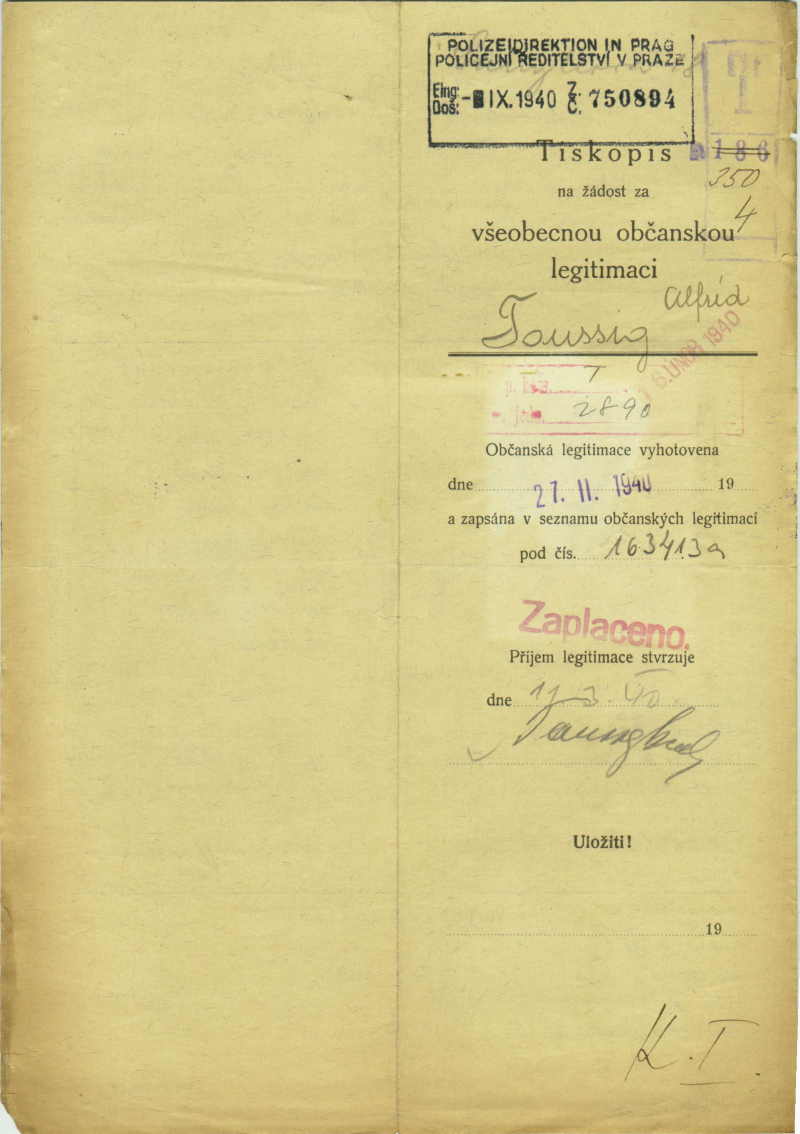 POLIZEIDIREKTION IN PRAG
POLICEJNÍ ŘEDITELSTVÍ V PRAZE
Eing: Doš: - IX. 1940 Z: Č. 750894
T
Tiskopis
186
350
na žádost za
4
všeobecnou občanskou
legitimaci
Alfréd
Taussig
6. ÚNOR 1940
T
2890
Občanská legitimace vyhotovena
dne 27. II. 1940 19
a zapsána v seznamu občanských legitimací
pod čís. 163413a
Zaplaceno.
Příjem legitimace stvrzuje
dne 11 3. 40.
Uložiti!
19
K. T